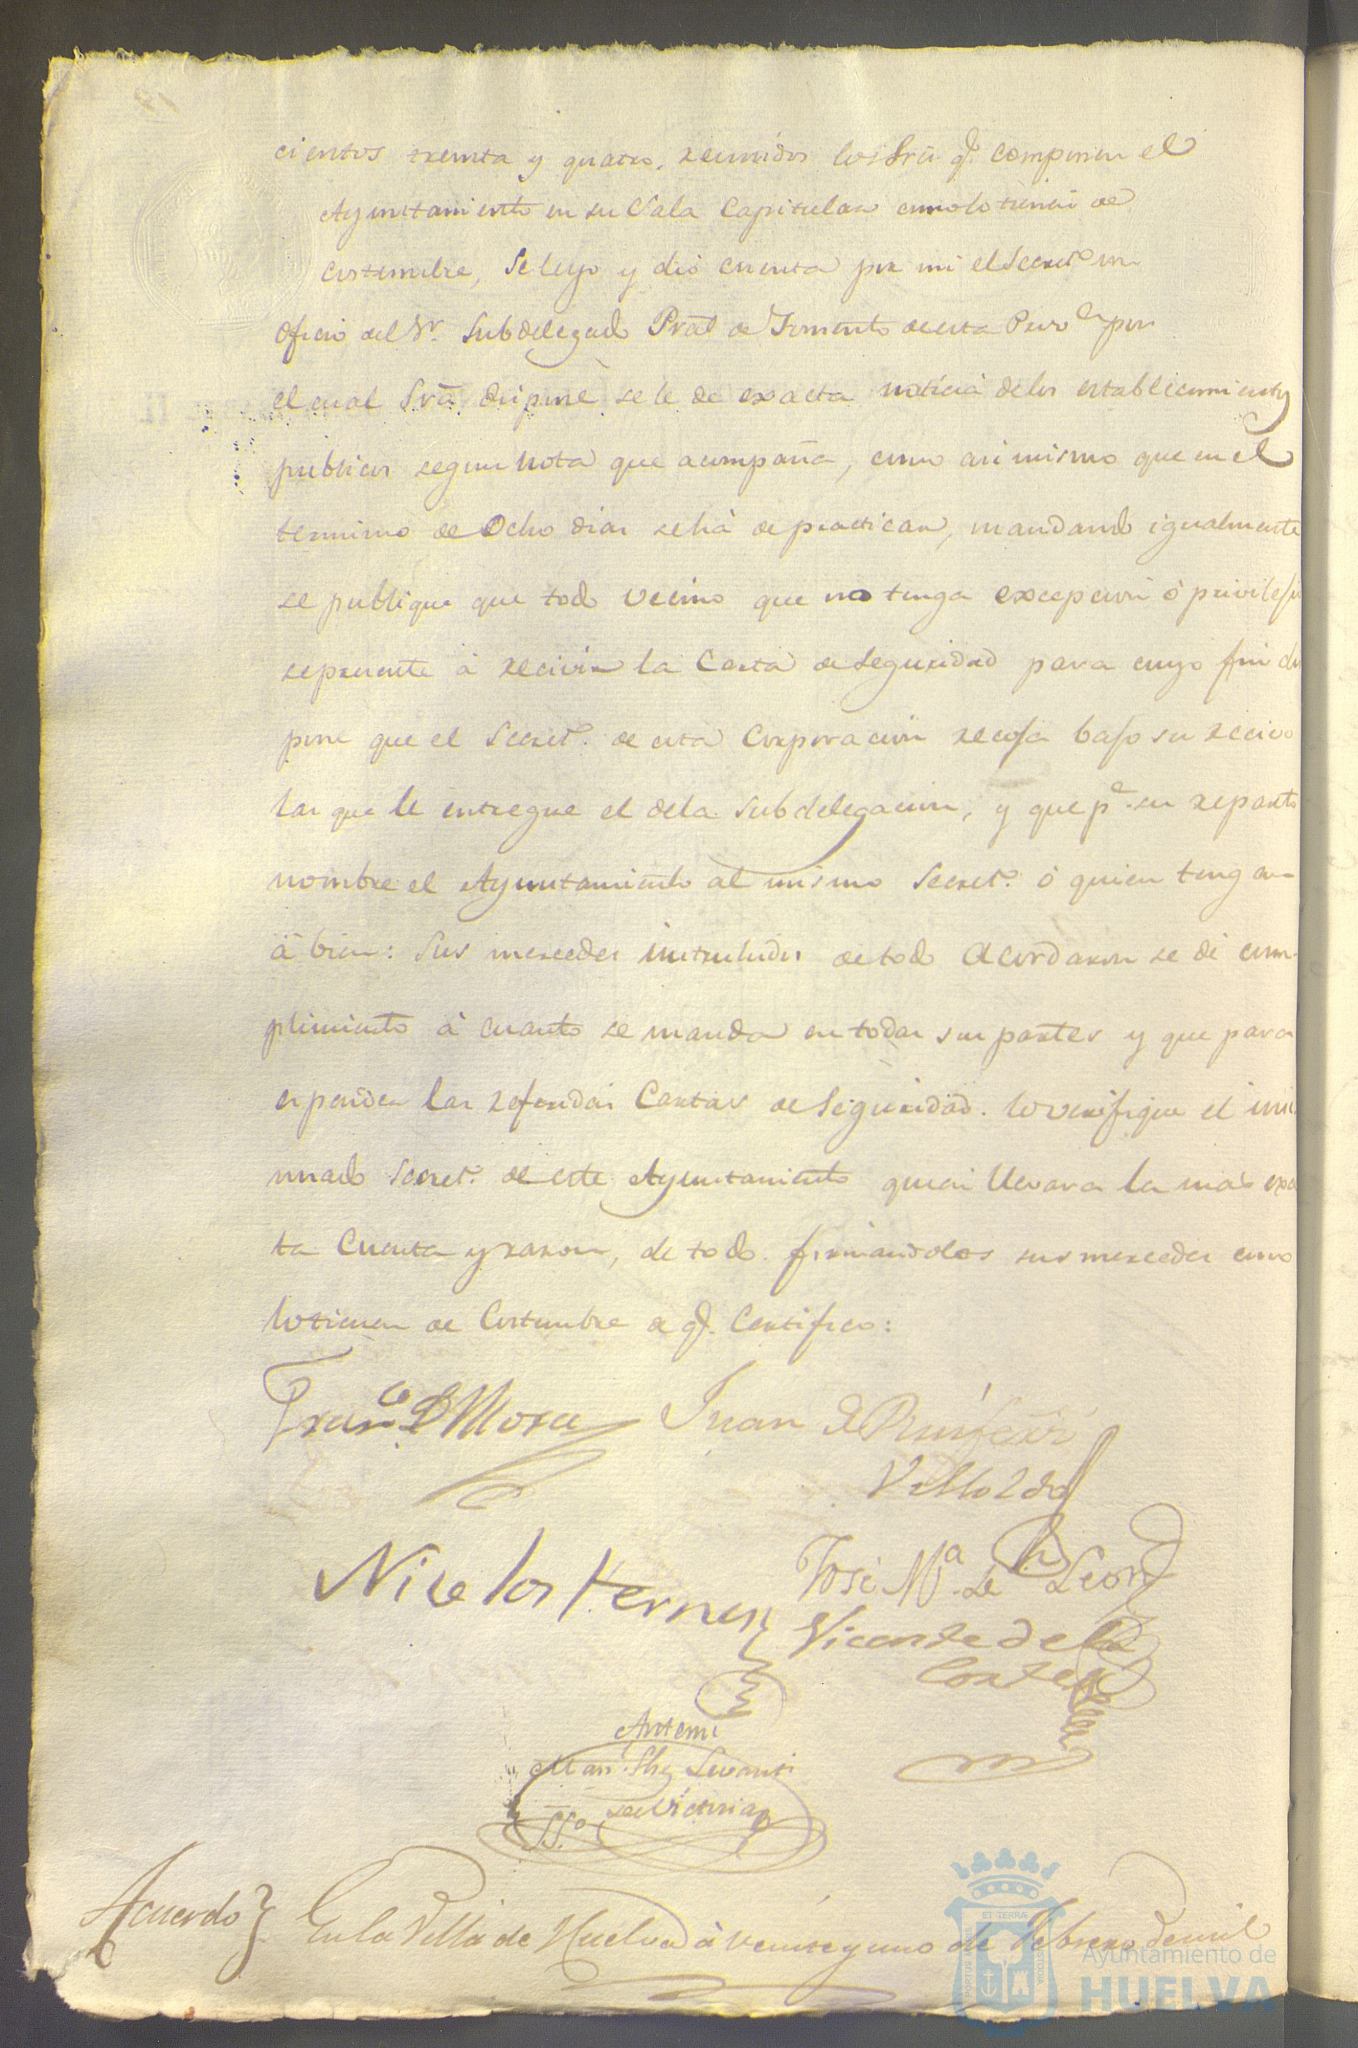 cientos treinta y quatro, reunidos los Sres. q.e componen el
Ayuntamiento en su Sala Capitular como lo tienen de
costumbre, se leyo y dió cuenta por mi el Secret.o un
oficio del Sr. Subdelegado Pral de Fomento de esta Prov.a por
el cual Sria dispone se le de exacta noticia de los establecimientos
publicos segun nota que acompaña, como asi mismo que en el
termino de Ocho dias se há de practicar, mandando igualmente
se publique que todo vecino que no tenga excepcion ó privilejio
se presente á recivir la Carta de Seguridad para cuyo fin dis
pone que el Secret.o de esta Corporacion recoja bajo su recivo
las que le entregue el de la Subdelegacion, y que p.a su reparto
nombre el Ayuntamiento al mismo Secret.o ó quien tengan
á bien: Sus mercedes instruhidos de todo Acordaron se dé cum-
plimiento á cuanto se manda en todas sus partes y que para
espender las referidas Cartas de Seguridad lo verifique el
Secret.o de este Ayuntamiento quien llevara la mas exac
ta Cuenta y razon, de todo firmandolos sus mercedes como
lo tienen de Costumbre de q.e Certifico:
Fran.co de Mora Juan
Nicolas Hernz José M.a de Leon
Vicente de la
Corte
Antemi
Man.l
SS.o
Acuerdo } En la Villa de Huelva á veinte y uno de Febrero de mil
ET TERRÆ
PORTUS MARIS
CUSTODIA
Ayuntamiento de
HUELVA